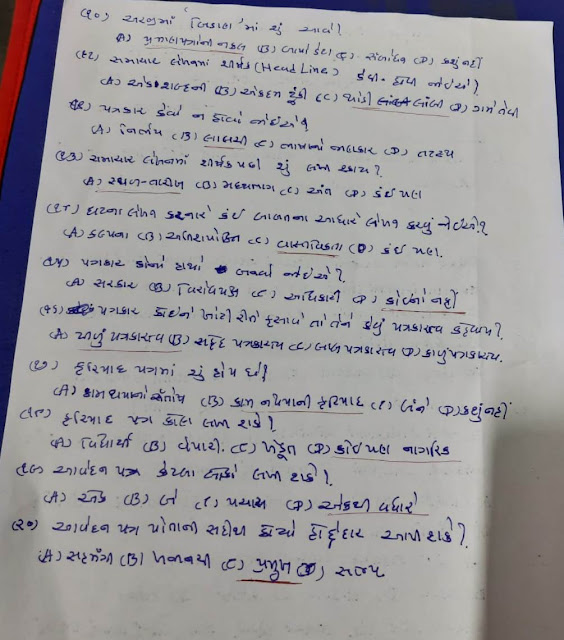 (૧૦) અરજીમાં 'બિડાણ'માં શું આવે?
(A) પ્રમાણપત્રોની નકલ (B) બાયો ડેટા (C) સંબોધન (D) કશું નહીં
(૧૧) સમાચાર લેખનમાં શીર્ષક (Head Line) કેવી હોવી જોઈએ?
(A) એક શબ્દની (B) એકદમ ટૂંકી (C) થોડી લાંબી (D) ગમે તેવી
(૧૨) પત્રકાર કેવો ન હોવો જોઈએ?
(A) નિર્ભય (B) લાલચી (C) ભાષાનો જાણકાર (D) તટસ્થ
(૧૩) સમાચાર લેખનમાં શીર્ષક પછી શું લખી શકાય?
(A) સ્થળ-તારીખ (B) મધ્યભાગ (C) અંત (D) કંઈ પણ
(૧૪) ઘટના લેખન કરનારે કંઈ બાબતના આધારે લેખન કરવું જોઈએ?
(A) કલ્પના (B) અતિશયોક્તિ (C) વાસ્તવિકતા (D) કંઈ પણ.
(૧૫) પત્રકાર કોનો હાથો બનવો જોઈએ?
(A) સરકાર (B) વિરોધપક્ષ (C) અધિકારી (D) કોઈનો નહીં
(૧૬) પત્રકાર કોઈને ખોટી રીતે ફસાવે તો તેને કેવું પત્રકારત્વ કહેવાય?
(A) પીળું પત્રકારત્વ (B) સફેદ પત્રકારત્વ (C) લાલ પત્રકારત્વ (D) કાળું પત્રકારત્વ.
(૧૭) ફરિયાદ પત્રમાં શું હોય છે?
(A) કામ થયાનો સંતોષ (B) કામ ન થયાની ફરિયાદ (C) બંને (D) કશું નહીં
(૧૮) ફરિયાદ પત્ર કોણ લખી શકે?
(A) વિદ્યાર્થી (B) વેપારી (C) ખેડૂત (D) કોઈ પણ નાગરિક
(૧૯) આવેદન પત્ર કેટલા લોકો લખી શકે?
(A) એક (B) બે (C) પચાસ (D) એકથી વધારે
(૨૦) આવેદન પત્ર પોતાની સહીથી કયો હોદ્દેદાર આપી શકે?
(A) સહમંત્રી (B) ખજાનચી (C) પ્રમુખ (D) સભ્ય